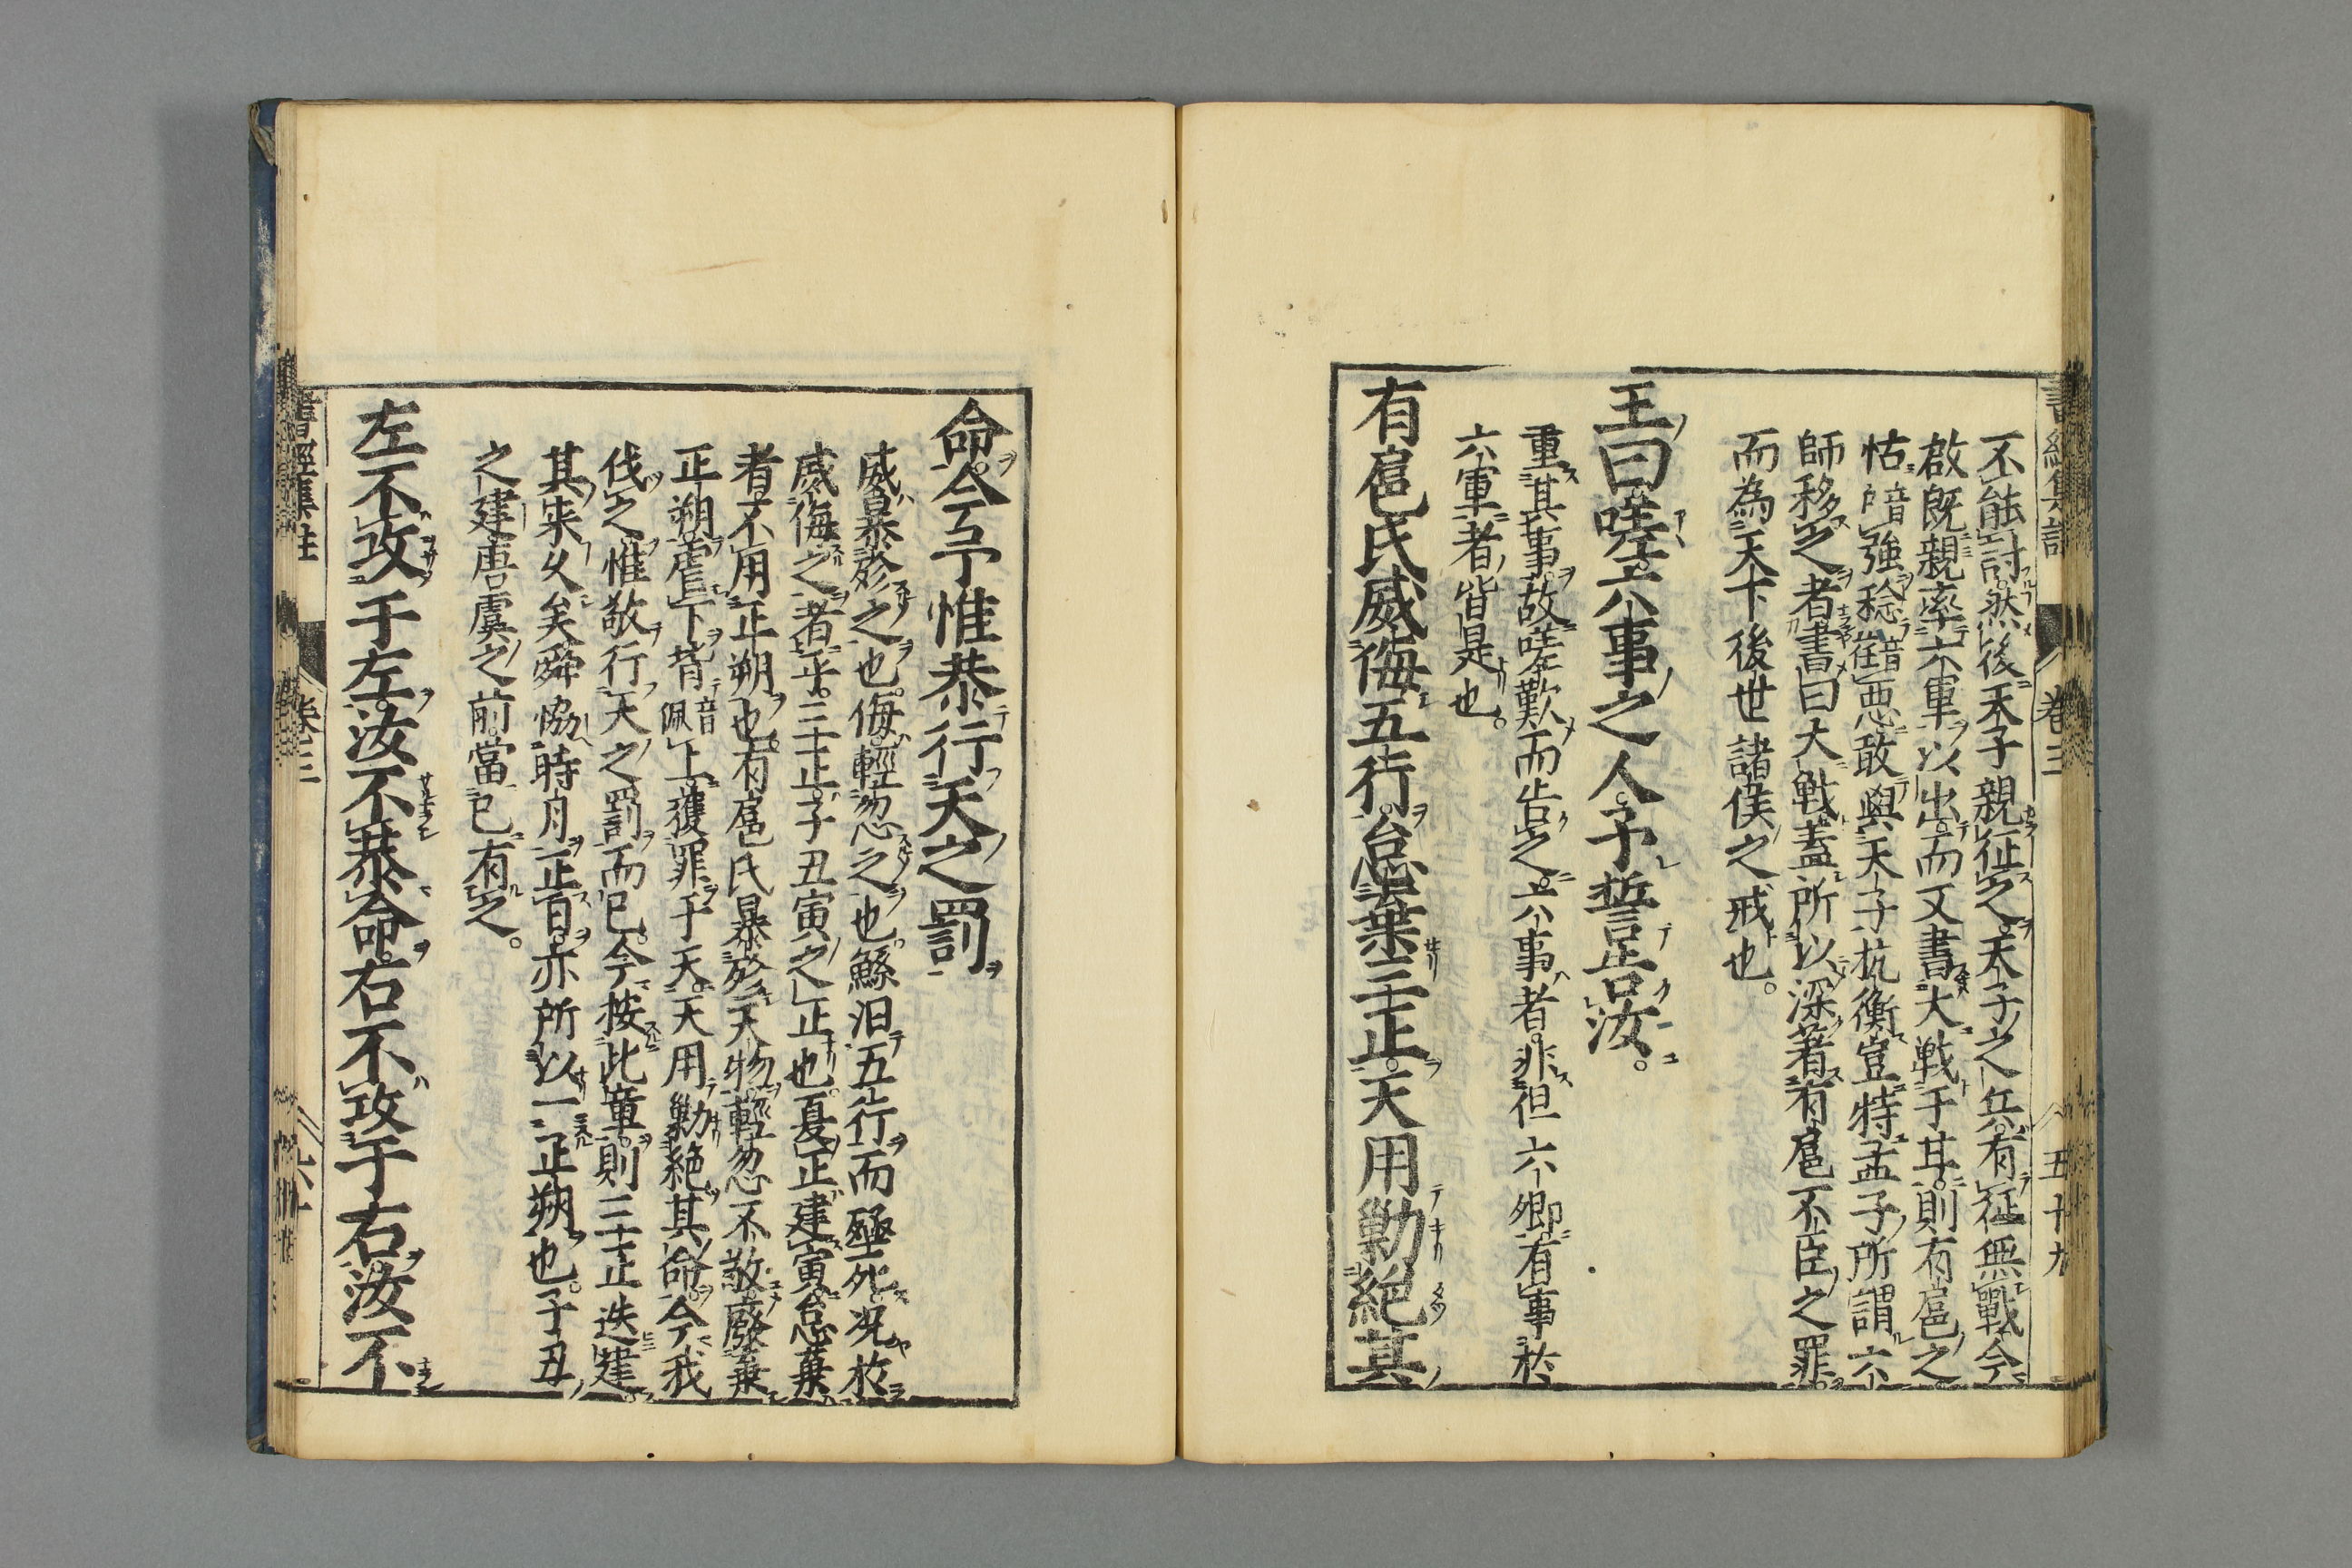 書經集註 卷三 五十九
不能討然後天子親征之天子之兵有征無戰今
啟既親率六軍以出而又書大戰于甘則有扈之
怙音強稔音惡敢與天子抗衡豈特孟子所謂六
師移之者書曰大戰蓋所以深著有扈不臣之罪
而為天下後世諸侯之戒也。
王曰嗟六事之人予誓告汝。
重其事故嗟歎而告之六事者非但六卿有事於
六軍者皆是也。
有扈氏威侮五行怠棄三正天用勦絕其
命今予惟恭行天之罰
威暴殄之也侮輕忽之也鯀汩五行而殛死況於
威侮之者乎三正子丑寅之正也夏正建寅怠棄
者不用正朔也有扈氏暴殄天物輕忽不敬廢棄
正朔虐下背音佩上獲罪于天天用勦絕其命今我
伐之惟敬行天之罰而已今按此章則三正迭建
其来久矣舜協時月正日亦所以一正朔也子丑
之建唐虞之前當已有之。
左不攻于左汝不恭命右不攻于右汝不
書經集註 卷三 六十